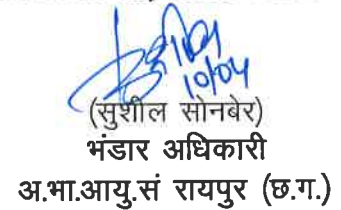 10/04
(सुशील सोनबेर)
भंडार अधिकारी
अ.भा.आयु.सं रायपुर (छ.ग.)